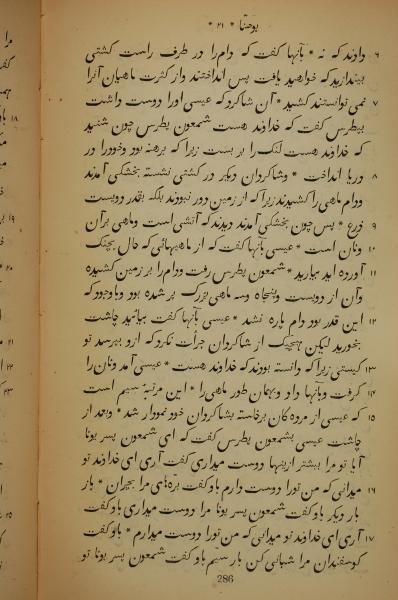 یوحنّا * ۲۱ *
۶ دادند که نه * بآنها گفت که دام را در طرف راست کشتی
بیندازید که خواهید یافت پس انداختند و از کثرت ماهیان آنرا
۷ نمی توانستند کشید * آن شاگرد که عیسی اورا دوست داشت
بپطرس گفت که خداوند هست شمعون پطرس چون شنید
که خداوند هست لنگ را بر بست زیرا که برهنه بود و خود را در
۸ دریا انداخت * و شاگردان دیگر در کشتی نشسته بخشکی آمدند
و دام ماهی را کشیدند زیرا که از زمین دور نبودند بلکه بقدر دویست
۹ ذرع * پس چون بخشکی آمدند دیدند که آتشی است و ماهی بر آن
۱۰ و نان است * عیسی بآنها گفت که از ماهیهائی که حال بچنگ
۱۱ آورده اید بیارید * شمعون پطرس رفت و دام را بر زمین کشیده
و آن از دویست و پنجاه و سه ماهی بزرگ پر شده بود و با وجود که
۱۲ این قدر بود دام پاره نشد * عیسی بآنها گفت بیائید چاشت
بخورید لیکن هیچیک از شاگردان جرأت نکرد که ازو بپرسد تو
۱۳ کیستی زیرا که دانسته بودند که خداوند هست * عیسی آمد و نان را
۱۴ گرفت و بآنها داد و بهمان طور ماهی را * این مرتبهٔ سیم است
۱۵ که عیسی از مردهکان برخاسته بشاگردان خود نمودار شد * و بعد از
چاشت عیسی بشمعون پطرس گفت که ای شمعون پسر یونا
آیا تو مرا بیشتر از اینها دوست میداری گفت آری ای خداوند تو
۱۶ میدانی که من تورا دوست دارم باو گفت برههای مرا بچران * باز
بار دیگر باو گفت شمعون پسر یونا مرا دوست میداری باو گفت
۱۷ آری ای خداوند تو میدانی که من تورا دوست میدارم * باو گفت
گوسفندان مرا شبانی کن بار سیّم باو گفت شمعون پسر یونا تو
286